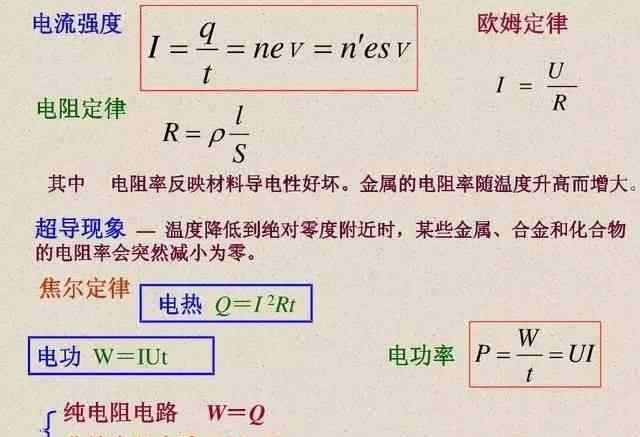 电流强度 I = q/t = neV = n'esV 欧姆定律
I = U/R
电阻定律 R = ρ l/S
其中 电阻率反映材料导电性好坏。金属的电阻率随温度升高而增大。
超导现象 — 温度降低到绝对零度附近时，某些金属、合金和化合物
的电阻率会突然减小为零。
焦尔定律 电热 Q=I²Rt
电功 W=IUt 电功率 P = W/t = UI
纯电阻电路 W=Q